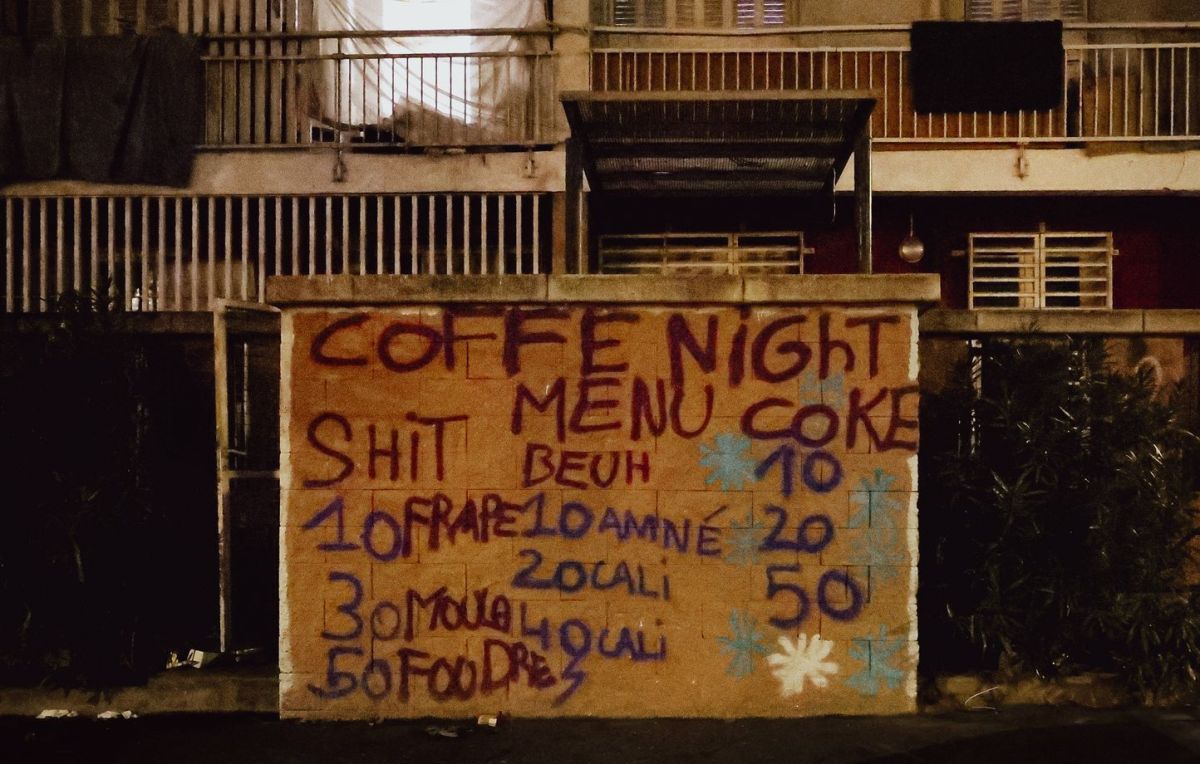 COFFE NiGhT
MENU
SHiT
BEUH
COKE
10 FRAPE
30 MOULA
50 FOUDRE
10 AMNÉ
20 CALi
40 CALi
10
20
50